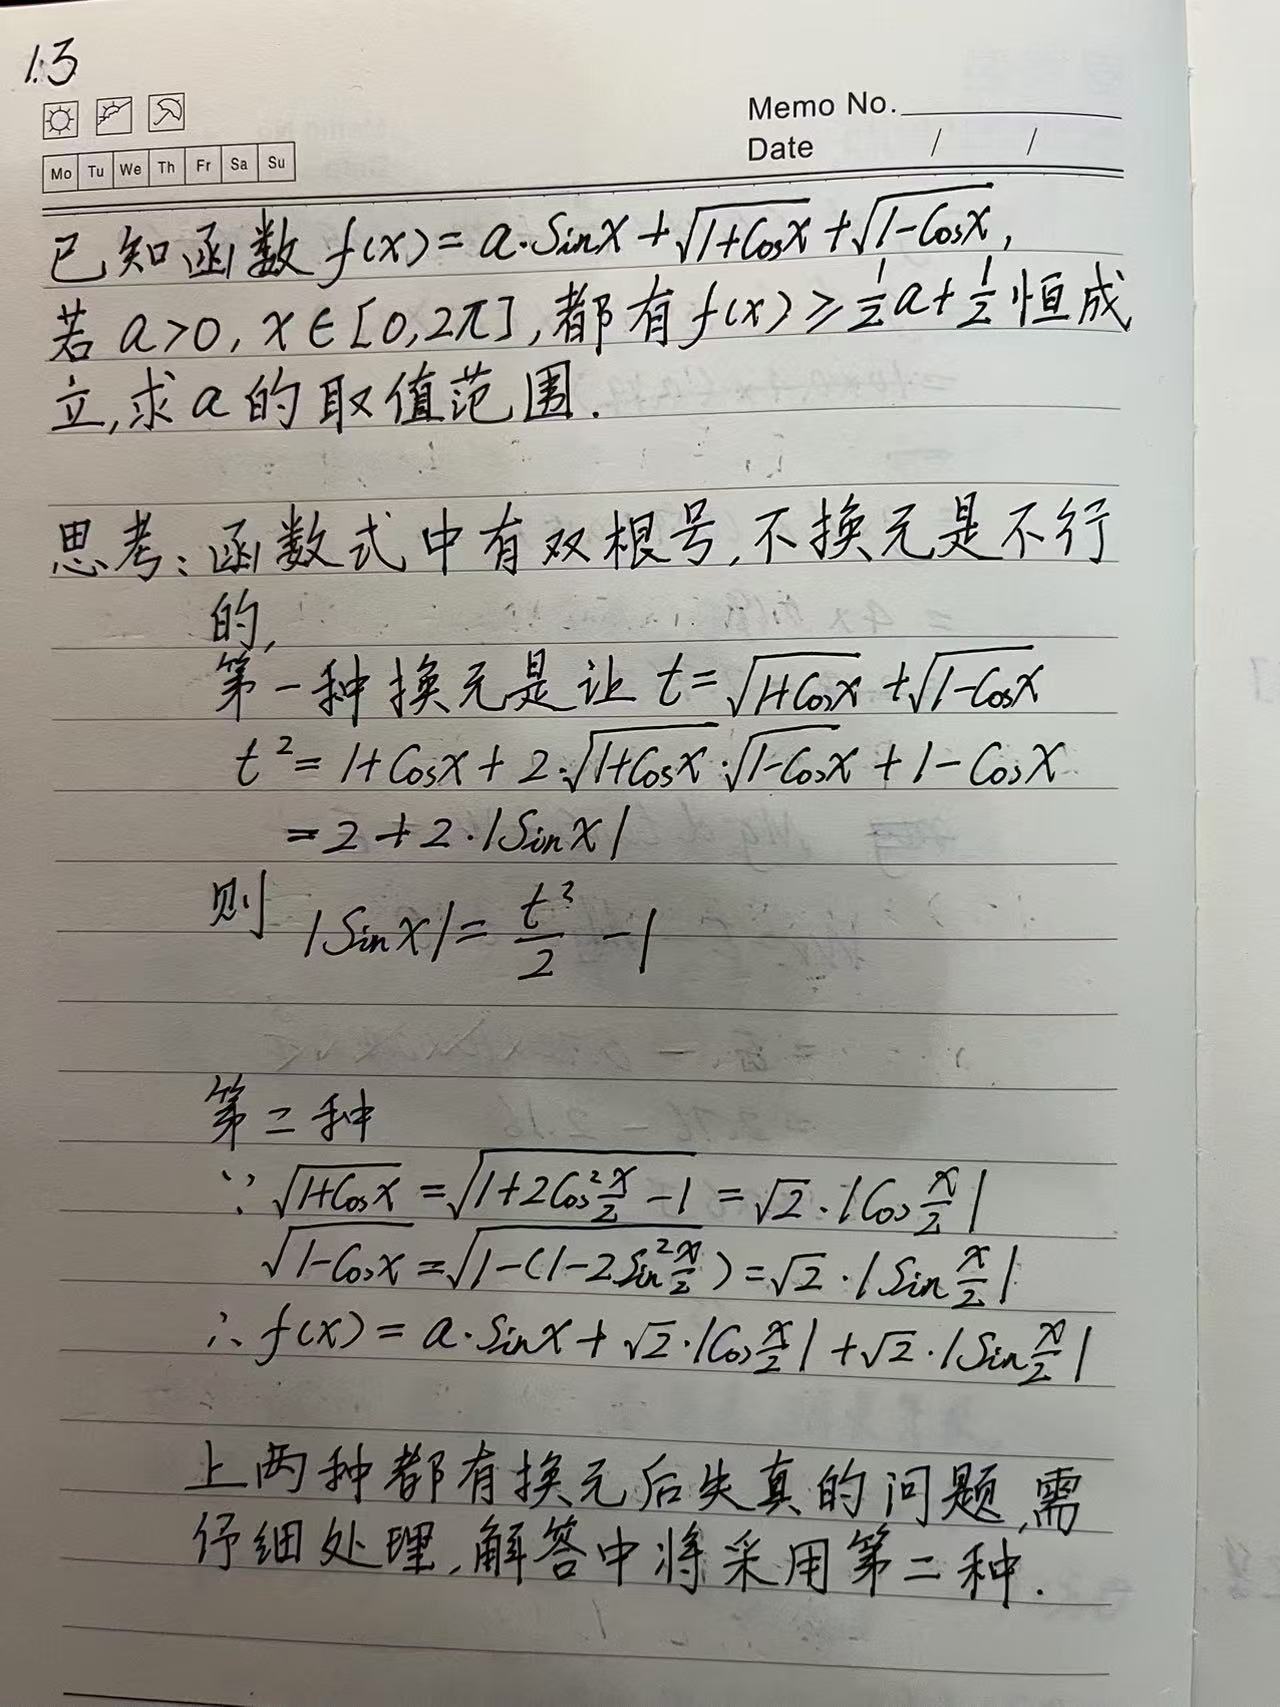 1.3
Memo No.
Mo Tu We Th Fr Sa Su
Date / /
已知函数 f(x)=a·Sinx+√(1+Cosx)+√(1-Cosx),
若 a>0, x∈[0,2π],都有f(x)≥½a+½恒成
立,求a的取值范围.
思考:函数式中有双根号,不换元是不行
的,
第一种换元是让 t=√(1+Cosx)+√(1-Cosx)
t²=1+Cosx+2·√(1+Cosx)·√(1-Cosx)+1-Cosx
=2+2·|Sinx|
则 |Sinx|=t²/2-1
第二种
∵ √(1+Cosx)=√(1+2Cos²x/2-1)=√2·|Cos x/2|
√(1-Cosx)=√(1-(1-2Sin²x/2))=√2·|Sin x/2|
∴ f(x)=a·Sinx+√2·|Cos x/2|+√2·|Sin x/2|
上两种都有换元后失真的问题,需
仔细处理,解答中将采用第二种.